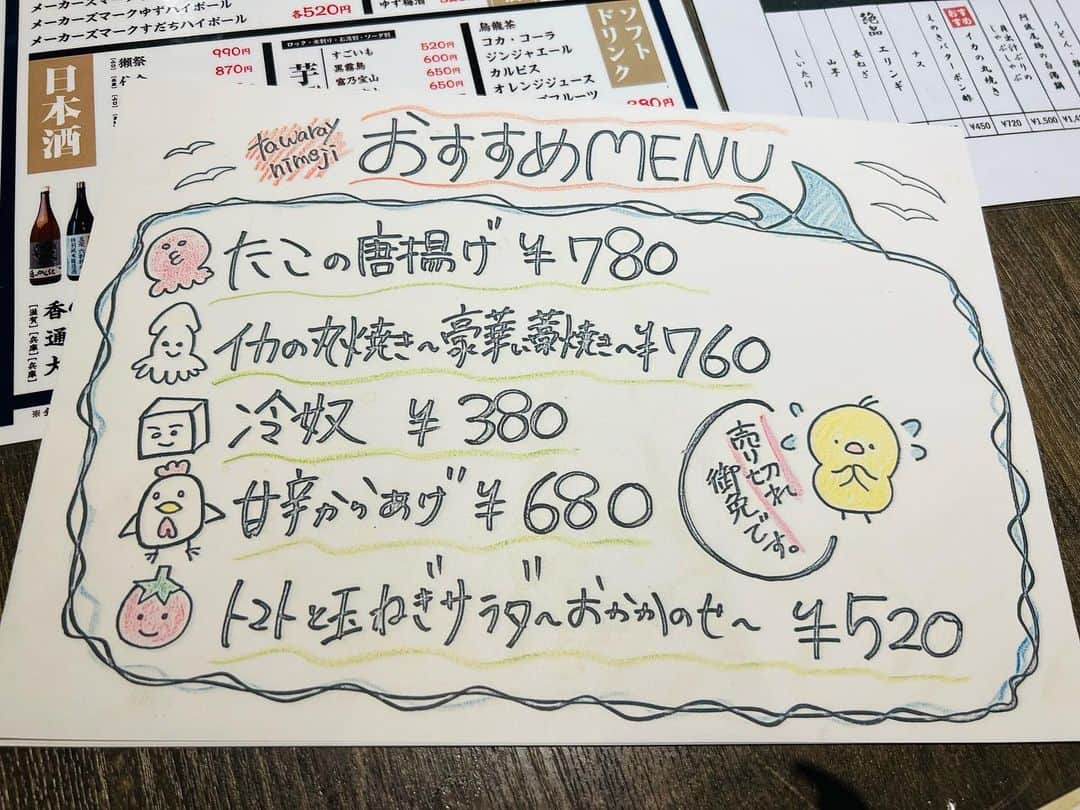 メーカーズマークゆずハイボール
メーカーズマークすだちハイボール
各520円
ゆず梅酒
日本酒
獺祭
990円
870円
香
通
大
[滋賀]
[兵庫]
[兵庫]
ロック・水割り・お湯割・ソーダ割
芋
すごいも
520円
黒霧島
600円
富乃宝山
650円
650円
烏龍茶
コカ・コーラ
ジンジャエール
カルピス
オレンジジュース
フルーツ
380円
ソフト
ドリンク
うどん
阿波尾鶏の白湯鍋
貝出汁ぶりの
しゃぶしゃぶ
イカの丸焼き
おすすめ
えのきバターポン酢
絶品
エリンギ
長ねぎ
ナス
山芋
しいたけ
¥450
¥720
¥1,500
tawaray
himeji
おすすめMENU
たこの唐揚げ ¥780
イカの丸焼き〜豪華い藁焼き〜¥760
冷奴 ¥380
甘辛からあげ ¥680
トマトと玉ねぎサラダ〜おかかのせ〜 ¥520
売り切れ
御免です。